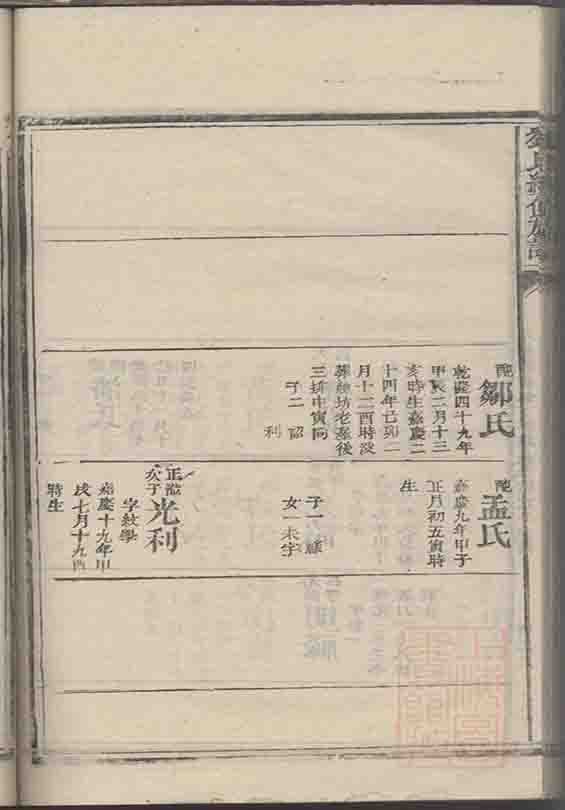 氏續修族譜
配
鄒氏
乾隆四十九年
甲辰二月十三
亥時生嘉慶二
十四年己卯二
月十二酉時沒
葬
坊老墓後
三排申寅向
子二
利
配
孟氏
嘉慶九年甲子
正月初五寅時
生
子一
女一未字
正
次子
光利
字敎學
嘉慶十九年甲
戌七月十九酉
時生